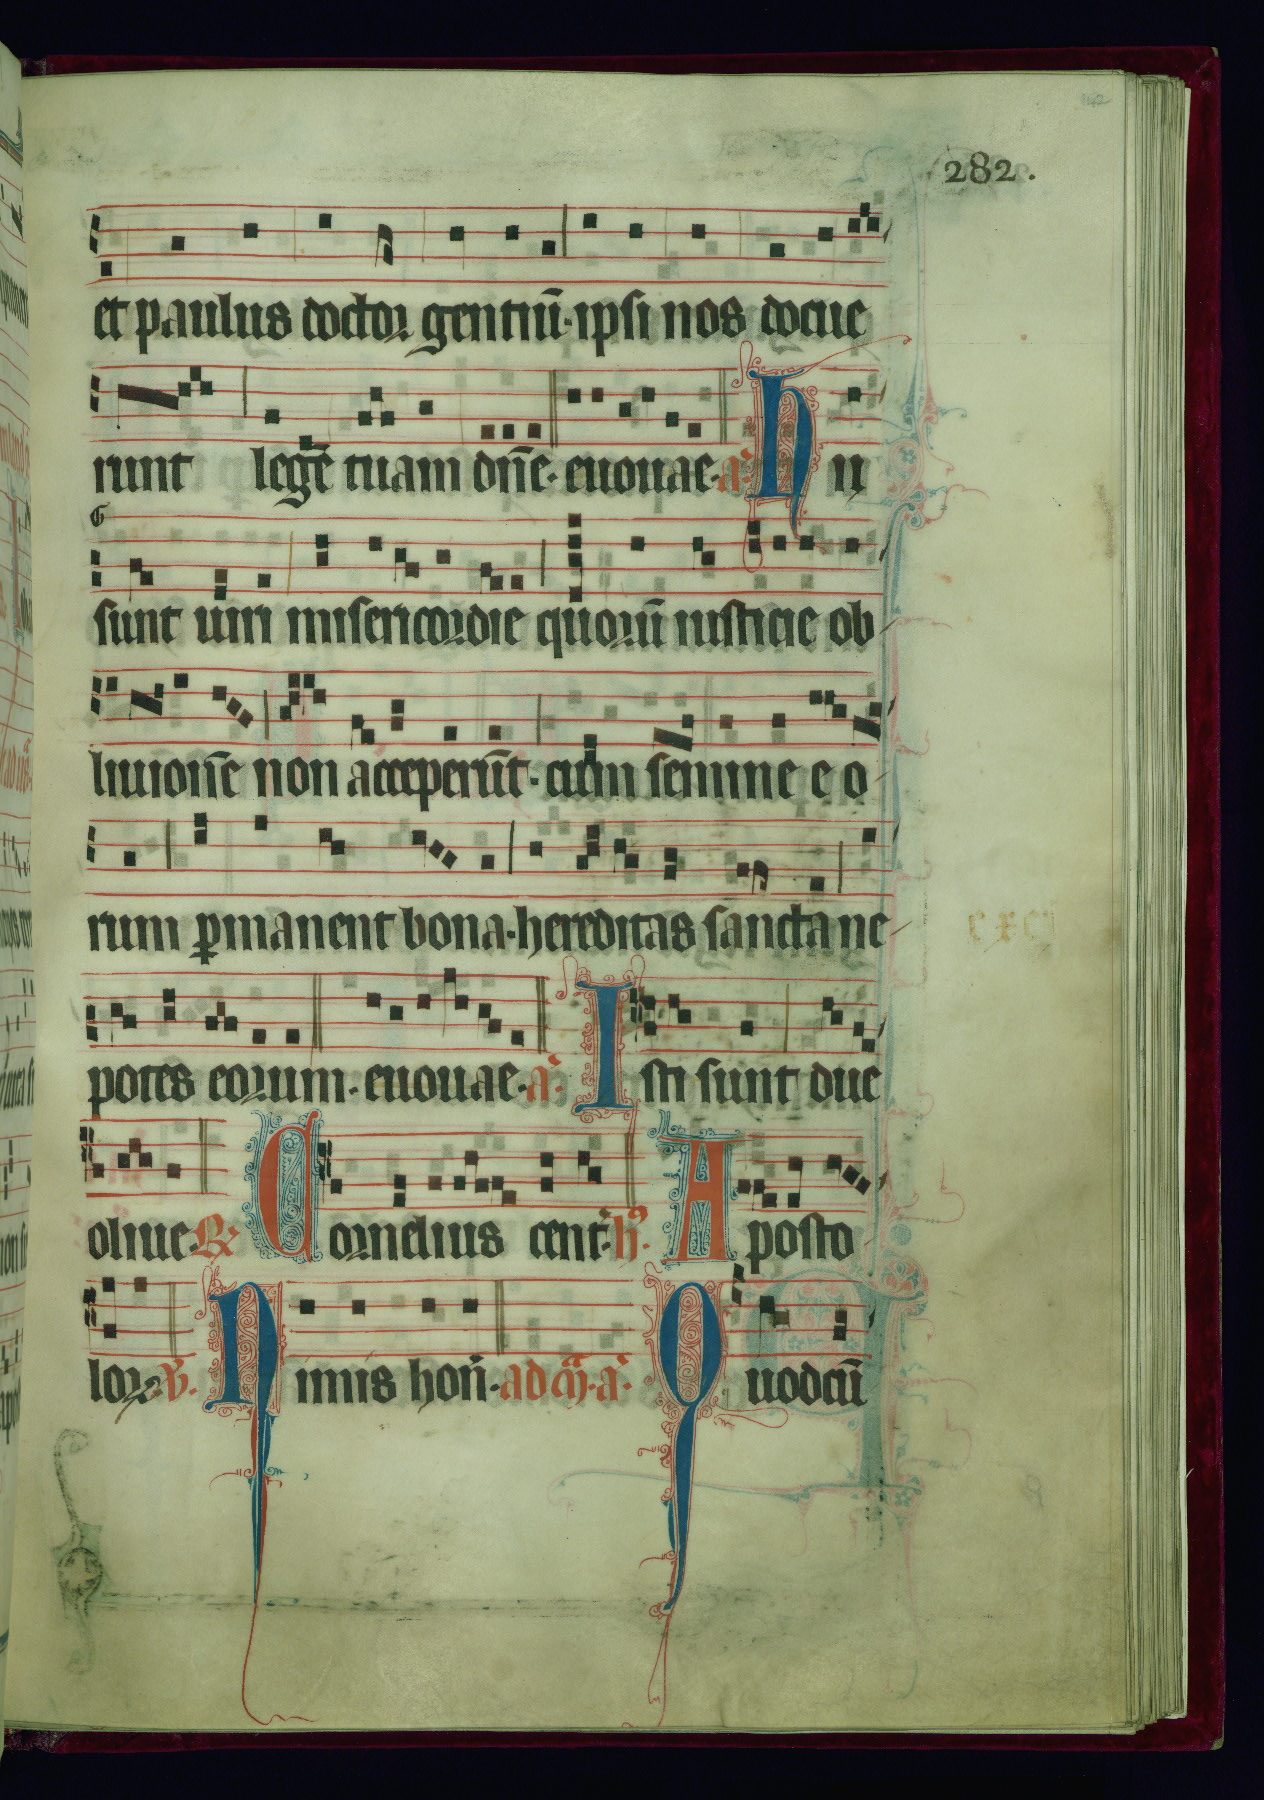 282.
et paulus doctor gentiū· ipsi nos docue
runt legē tuam dñe· euouae· a̾· Hii
sunt uiri misericordie quorū iusticie ob
liuionē non acceperūt· cum semine eo
rum ꝑmanent bona· hereditas sancta ne
potes eorum· euouae· a̾· Isti sunt due
oliue· ℟ Cornelius cent̾· h̾· Aposto
lorꝝ ℣. Nimis hon̄· ad m̄· a̾· Quodcū